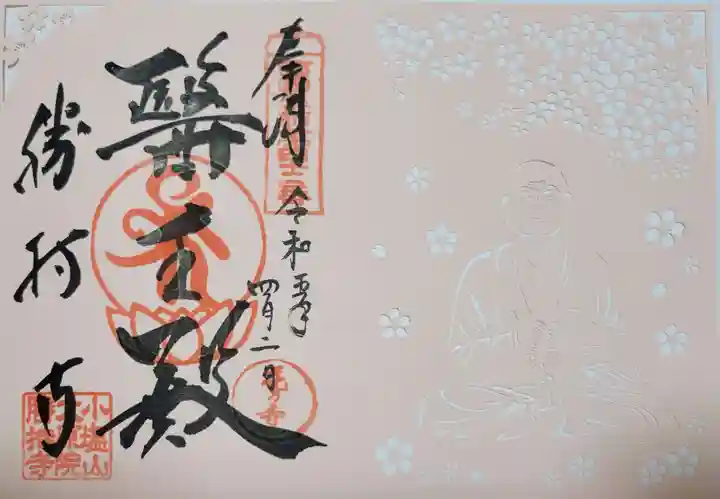 奉拝
令和五年
四月二日
醫王殿
勝持寺
花の寺
小塩山
大原院
勝持寺